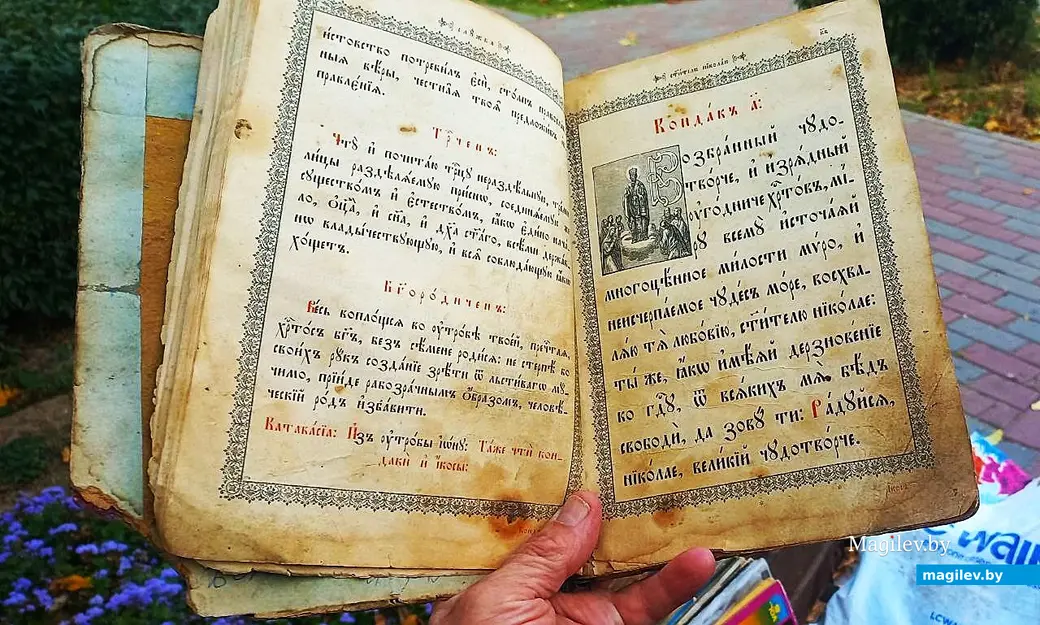 слѫжба
истовство потребилъ є҆сѝ, столпъ
ныѧ вѣры, честнаѧ твоѧ̀ предложивъ
правле́нїѧ.
Трⷪ҇ченъ:
Чтꙋ̀ и҆ почитаю трⷪ҇цꙋ нераздѣльнꙋю,
лицы раздѣлѧ́емꙋю присно, соединѧ́емꙋю же
сꙋществомъ и҆ є҆стествомъ, ꙗ҆́кѡ є҆ди́но нача́-
ло, ѻ҆ц҃а̀, и҆ сн҃а, и҆ дх҃а ст҃а́го, всѣми держа́-
нѡ владычествꙋющꙋю, и҆ всѧ̑ соблюдающꙋю ꙗ҆́кѡже
хо́щетъ.
Бг҃оро́диченъ:
Весь воплощсѧ во ᲂу҆тробѣ твое́й, преⷭ҇таѧ,
хрⷭ҇то́съ бг҃ъ, без̾ сѣ́мене родисѧ: не стерпѣ̀ бо
свои́хъ рꙋкъ созда́нїе зрѣти ѿ льсти́вагѡ мꙋ-
чимо, прїи́де рабозра́чнымъ ѻ҆́бразомъ, человѣ́-
ческїй ро́дъ и҆збавити.
Катавасїа: И҆з̾ ᲂу҆тро́бы і҆ѡ́нꙋ: Та́же чтꙋ́тъ кон-
даки̑ и҆ і҆́косы:
ст҃и́телю нїкола́ю
Конда́къ а҃:
Возбра́нный чꙋдо-
тво́рче, и҆ и҆зрѧ́дный
ᲂу҆го́дниче хрⷭ҇то́въ, мі́-
рꙋ всемꙋ̀ и҆сточа́ѧй
многоцѣ́нное ми́лости мѵ́ро, и҆
неисчерпа́емое чꙋде́съ мо́ре, восхва-
лѧ́ю тѧ̀ любо́вїю, ст҃и́телю нїко́лае:
ты́ же, ꙗ҆́кѡ и҆мѣ́ѧй дерзнове́нїе
ко гдⷭ҇ꙋ, ѿ всѧ́кихъ мѧ̀ бѣ́дъ
свободѝ, да зовꙋ́ ти: Ра́дꙋйсѧ,
нїко́лае, вели́кїй чꙋдотво́рче.
Magilev.by
magilev.by